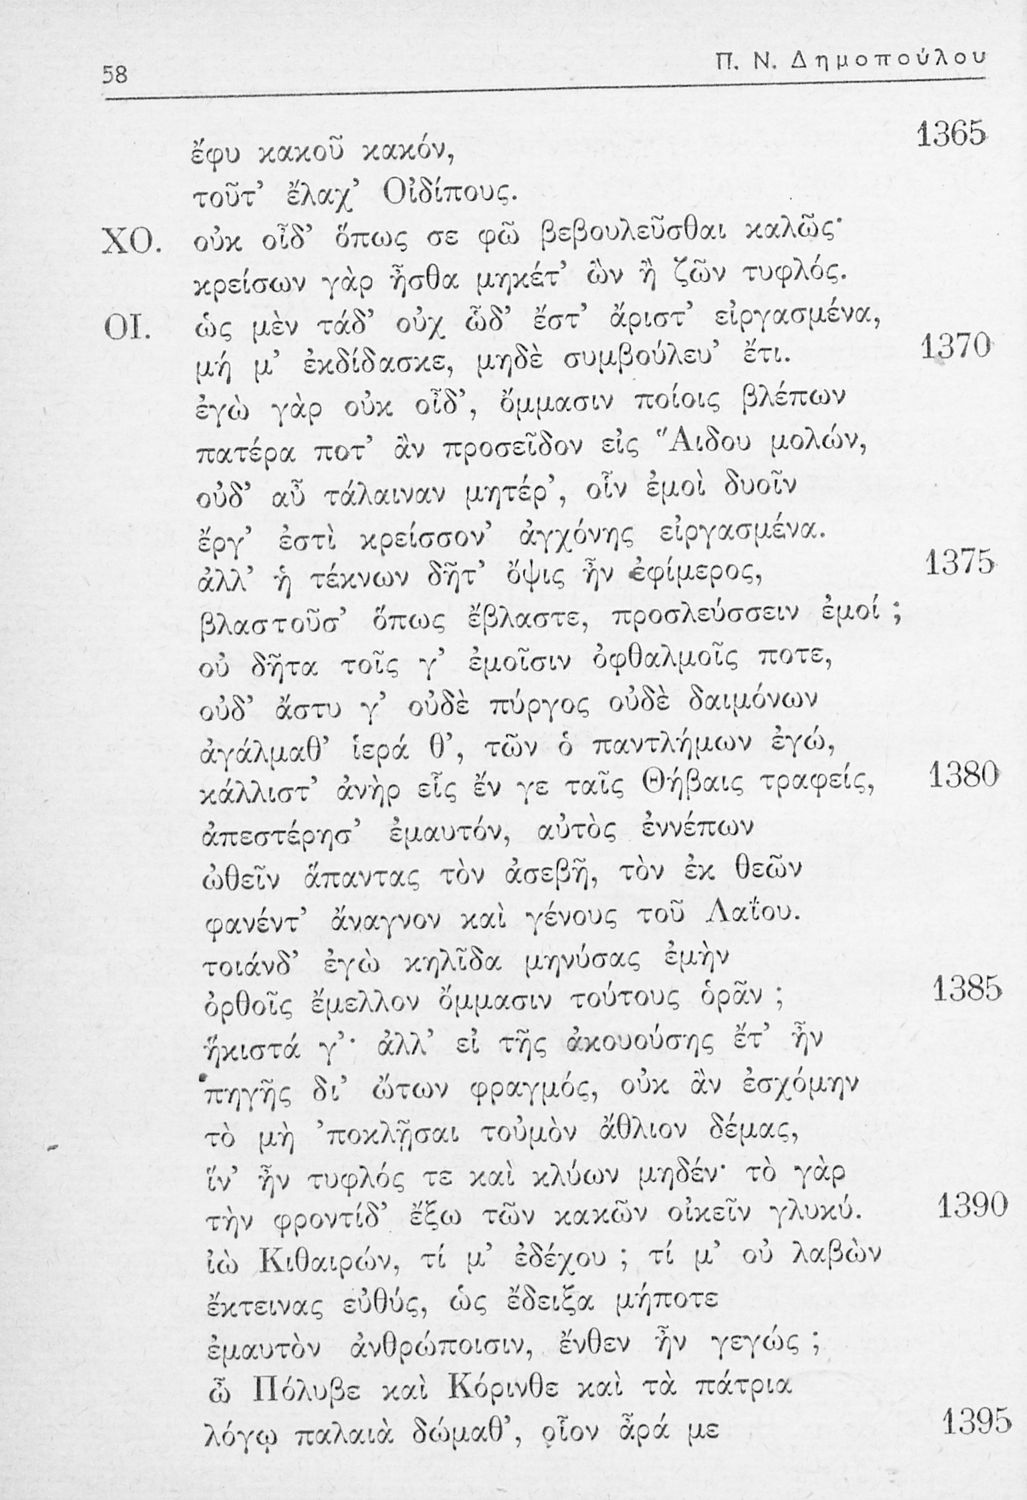 58
Π. Ν. Δημοπούλου
ἔφυ κακοῦ κακόν, 1365
τοῦτ’ ἔλαχ’ Οἰδίπους.
ΧΟ. οὐκ οἶδ’ ὅπως σε φῶ βεβουλεῦσθαι καλῶς·
κρείσων γὰρ ἦσθα μηκέτ’ ὢν ἢ ζῶν τυφλός.
ΟΙ. ὡς μὲν τάδ’ οὐχ ὧδ’ ἔστ’ ἄριστ’ εἰργασμένα,
μή μ’ ἐκδίδασκε, μηδὲ συμβούλευ’ ἔτι. 1370
ἐγὼ γὰρ οὐκ οἶδ’, ὄμμασιν ποίοις βλέπων
πατέρα ποτ’ ἂν προσεῖδον εἰς Ἅιδου μολών,
οὐδ’ αὖ τάλαιναν μητέρ’, οἷν ἐμοὶ δυοῖν
ἔργ’ ἐστὶ κρείσσον’ ἀγχόνης εἰργασμένα.
ἀλλ’ ἡ τέκνων δῆτ’ ὄψις ἦν ἐφίμερος, 1375
βλαστοῦσ’ ὅπως ἔβλαστε, προσλεύσσειν ἐμοί ;
οὐ δῆτα τοῖς γ’ ἐμοῖσιν ὀφθαλμοῖς ποτε,
οὐδ’ ἄστυ γ’ οὐδὲ πύργος οὐδὲ δαιμόνων
ἀγάλμαθ’ ἱερά θ’, τῶν ὁ παντλήμων ἐγώ,
κάλλιστ’ ἀνὴρ εἷς ἔν γε ταῖς Θήβαις τραφείς, 1380
ἀπεστέρησ’ ἐμαυτόν, αὐτὸς ἐννέπων
ὠθεῖν ἅπαντας τὸν ἀσεβῆ, τὸν ἐκ θεῶν
φανέντ’ ἄναγνον καὶ γένους τοῦ Λαΐου.
τοιάνδ’ ἐγὼ κηλῖδα μηνύσας ἐμὴν
ὀρθοῖς ἔμελλον ὄμμασιν τούτους ὁρᾶν ; 1385
ἥκιστά γ’· ἀλλ’ εἰ τῆς ἀκουούσης ἔτ’ ἦν
πηγῆς δι’ ὤτων φραγμός, οὐκ ἂν ἐσχόμην
τὸ μὴ ’ποκλῇσαι τοὐμὸν ἄθλιον δέμας,
ἵν’ ἦν τυφλός τε καὶ κλύων μηδέν· τὸ γὰρ
τὴν φροντίδ’ ἔξω τῶν κακῶν οἰκεῖν γλυκύ. 1390
ἰὼ Κιθαιρών, τί μ’ ἐδέχου ; τί μ’ οὐ λαβὼν
ἔκτεινας εὐθύς, ὡς ἔδειξα μήποτε
ἐμαυτὸν ἀνθρώποισιν, ἔνθεν ἦν γεγώς ;
ὦ Πόλυβε καὶ Κόρινθε καὶ τὰ πάτρια
λόγῳ παλαιὰ δώμαθ’, οἷον ἆρά με 1395